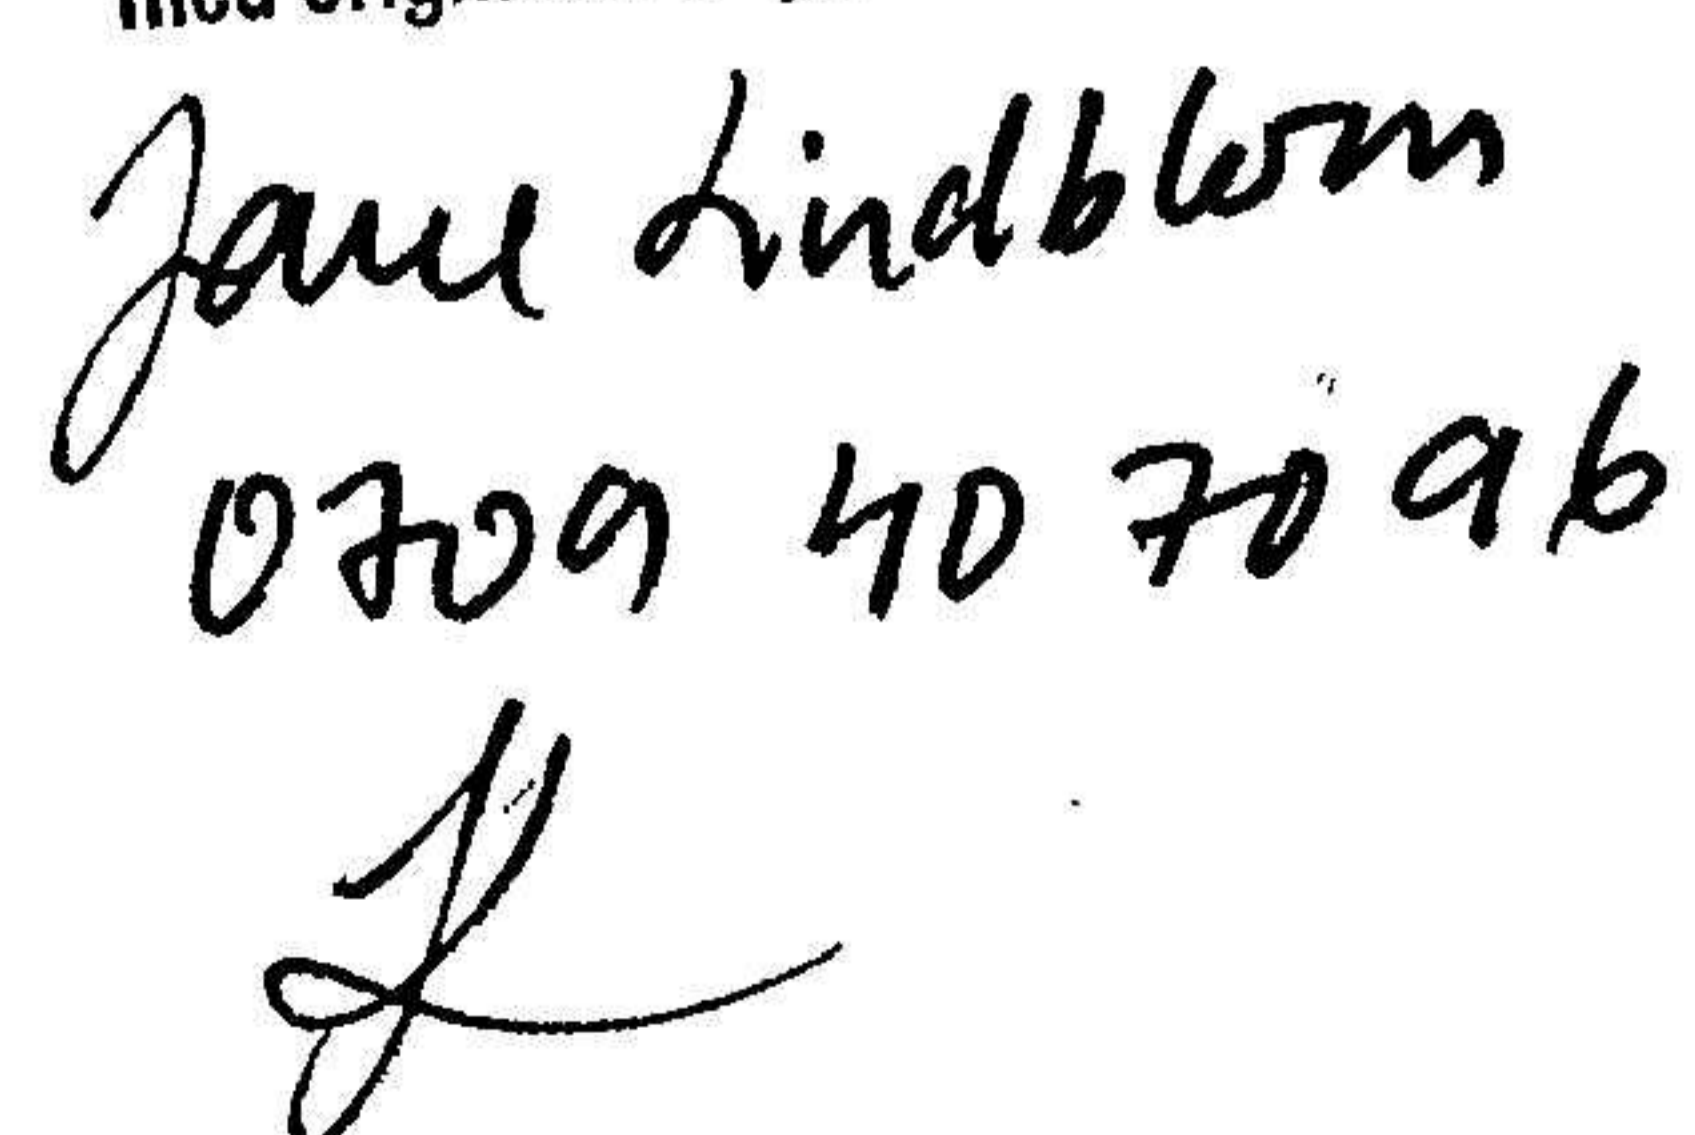 med
Jane Lindblom
0709 40 70 96